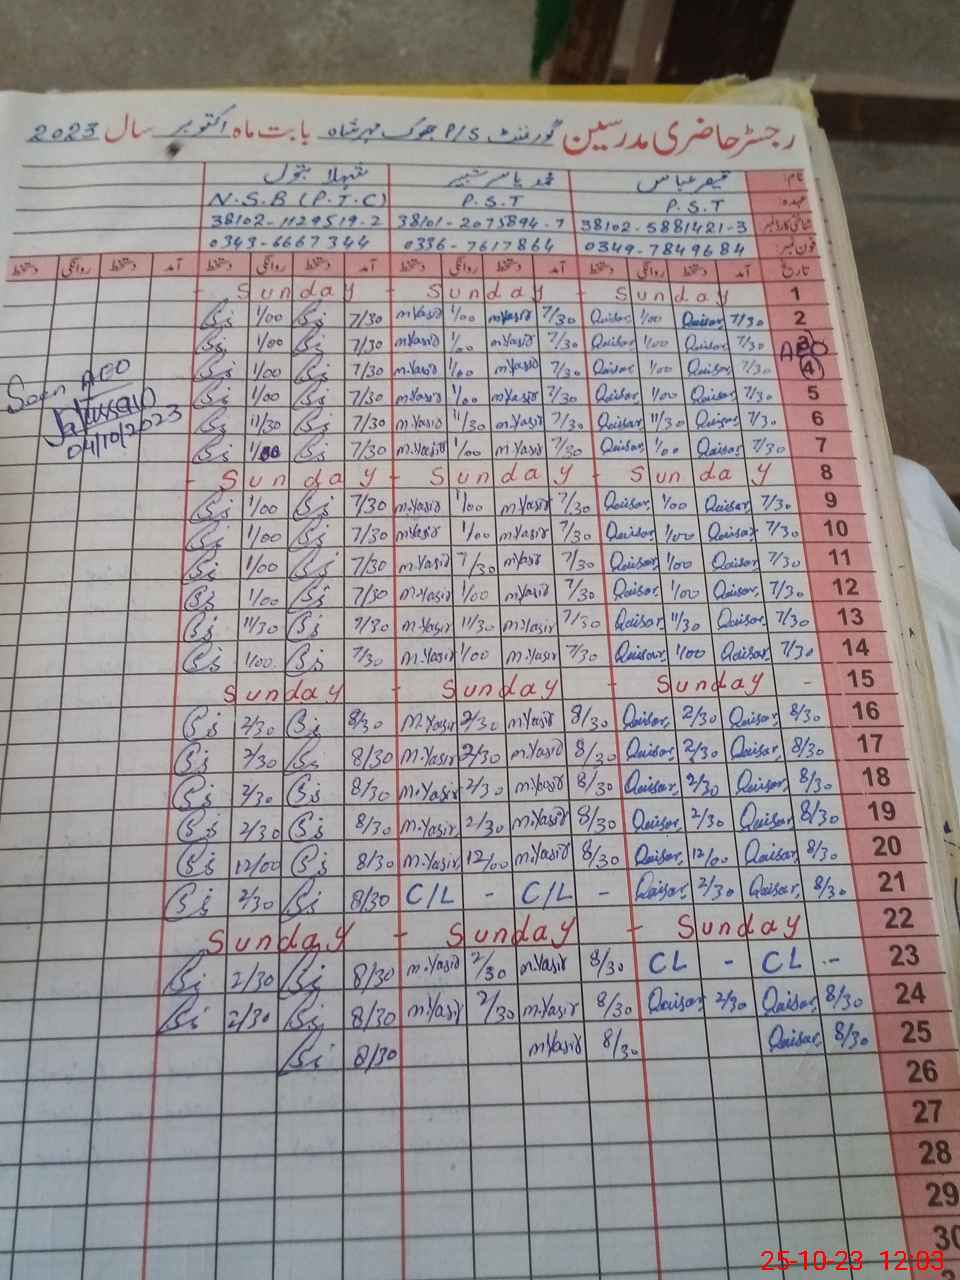 رجسٹر حاضری مدرسین گورنمنٹ P/S جھوک مہر شاہ بابت ماہ اکتوبر سال 2023
نام: قیصر عباس محمد یاسر شبیر شہلا بتول
عہدہ: P.S.T P.S.T N.S.B (P.T.C)
شناختی کارڈ نمبر 38102-5881421-3 38101-2075894-7 38102-1129519-2
فون نمبر: 0349-7849684 0336-7617864 0343-6667344
تاریخ آمد دستخط روانگی دستخط آمد دستخط روانگی دستخط آمد دستخط روانگی دستخط آمد دستخط روانگی دستخط
1 Sunday - Sunday - Sunday -
2 7/30 Qaisar 1/00 Qaisar 7/30 m.Yasir 1/00 m.Yasir 7/30 1/00
3 7/30 Qaisar 1/00 Qaisar 7/30 m.Yasir 1/00 m.Yasir 7/30 1/00
AEO
4 7/30 Qaisar 1/00 Qaisar 7/30 m.Yasir 1/00 m.Yasir 7/30 1/00
5 7/30 Qaisar 1/00 Qaisar 7/30 m.Yasir 1/00 m.Yasir 7/30 1/00
6 7/30 Qaisar 11/30 Qaisar 7/30 m.Yasir 11/30 m.Yasir 7/30 11/30
7 7/30 Qaisar 1/00 Qaisar 7/30 m.Yasir 1/00 m.Yasir 7/30 1/00
Seen AEO
04/10/2023
8 Sunday - Sunday - Sunday -
9 7/30 Qaisar 1/00 Qaisar 7/30 m.Yasir 1/00 m.Yasir 7/30 1/00
10 7/30 Qaisar 1/00 Qaisar 7/30 m.Yasir 1/00 m.Yasir 7/30 1/00
11 7/30 Qaisar 1/00 Qaisar 7/30 m.Yasir 7/30 m.Yasir 7/30 1/00
12 7/30 Qaisar 1/00 Qaisar 7/30 m.Yasir 1/00 m.Yasir 7/30 1/00
13 7/30 Qaisar 11/30 Qaisar 7/30 m.Yasir 11/30 m.Yasir 7/30 11/30
14 7/30 Qaisar 1/00 Qaisar 7/30 m.Yasir 1/00 m.Yasir 7/30 1/00
15 - Sunday - Sunday - Sunday
16 8/30 Qaisar 2/30 Qaisar 8/30 m.Yasir 2/30 m.Yasir 8/30 2/30
17 8/30 Qaisar 2/30 Qaisar 8/30 m.Yasir 2/30 m.Yasir 8/30 2/30
18 8/30 Qaisar 2/30 Qaisar 8/30 m.Yasir 2/30 m.Yasir 8/30 2/30
19 8/30 Qaisar 2/30 Qaisar 8/30 m.Yasir 2/30 m.Yasir 8/30 2/30
20 8/30 Qaisar 12/00 Qaisar 8/30 m.Yasir 12/00 m.Yasir 8/30 12/00
21 8/30 Qaisar 2/30 Qaisar - C/L - C/L 8/30 2/30
22 Sunday - Sunday - Sunday
23 - CL - CL 8/30 m.Yasir 2/30 m.Yasir 8/30 2/30
24 8/30 Qaisar 2/30 Qaisar 8/30 m.Yasir 2/30 m.Yasir 8/30 2/30
25 8/30 Qaisar 8/30 m.Yasir 8/30
26
27
28
29
30
25-10-23 12:03